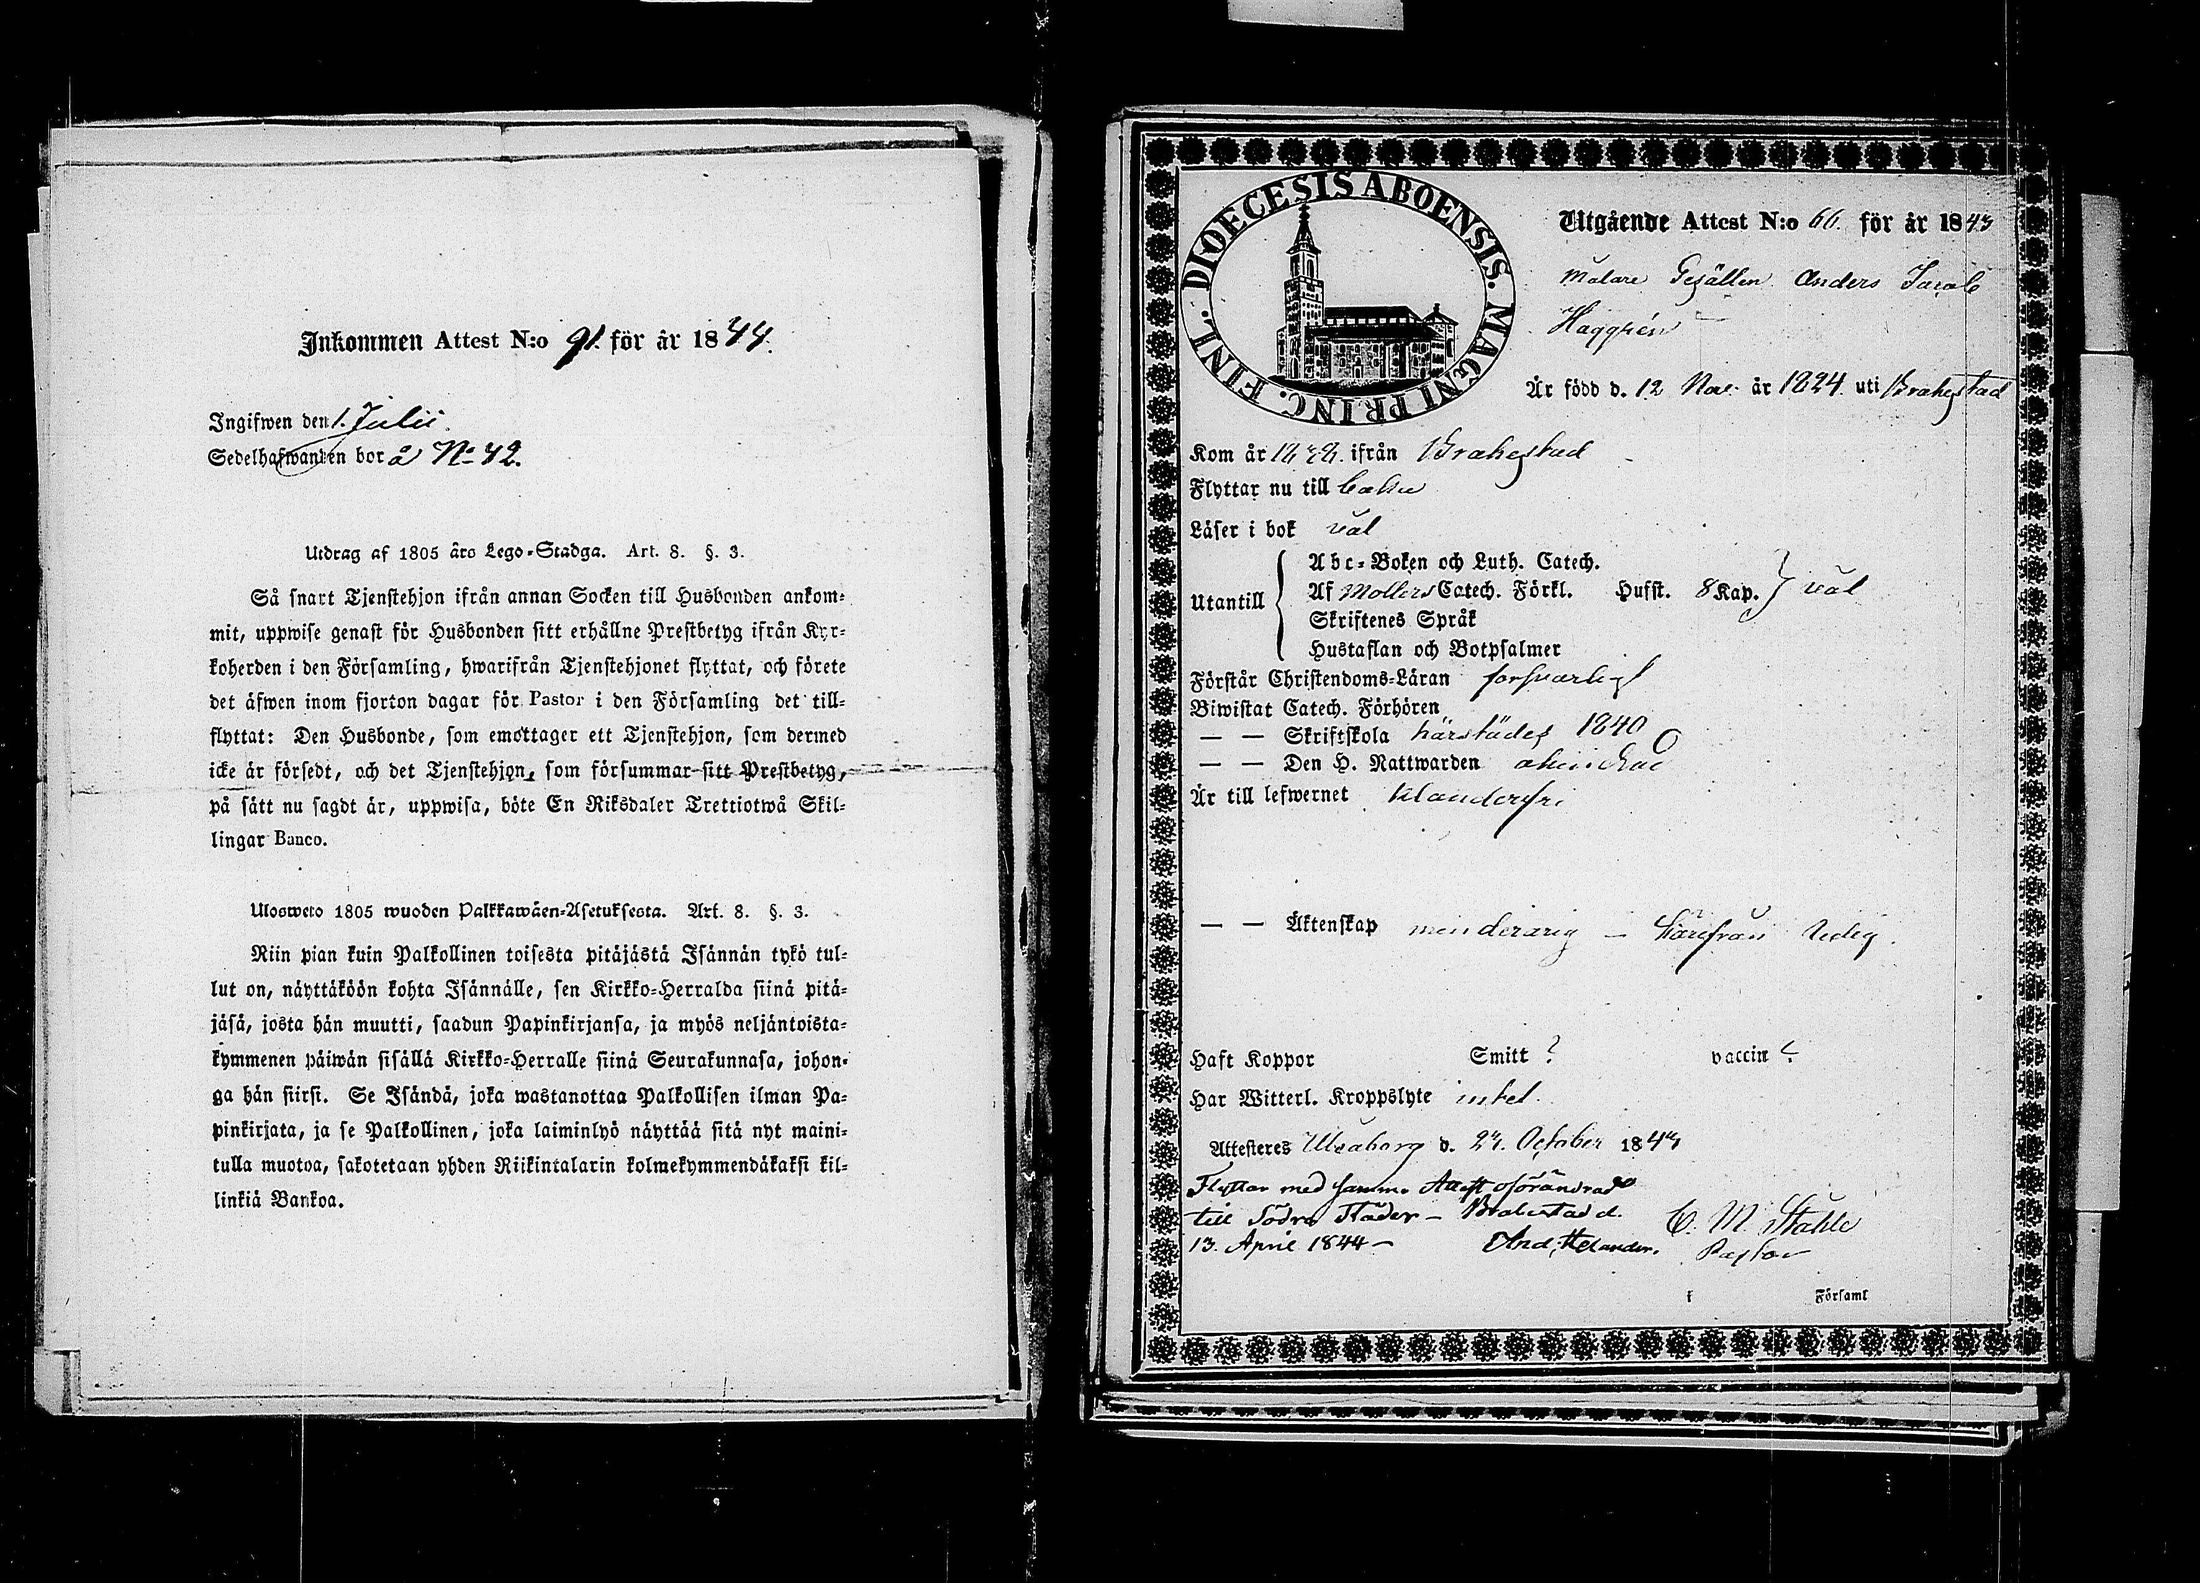 Inkommen Attest N:o 91. för år 1844.
Ingifwen den 1. Julii.
Sedelhafwanden bor å No 42.
Utdrag af 1805 års Lego-Stadga. Art. 8. §. 3.
Så snart Tjenstehjon ifrån annan Socken till Husbonden ankom-
mit, uppwise genast för Husbonden sitt erhållne Prestbetyg ifrån Kyr-
koherden i den Församling, hwarifrån Tjenstehjonet flyttat, och förete
det äfwen inom fjorton dagar för Pastor i den Församling det till-
flyttat: Den Husbonde, som emottager ett Tjenstehjon, som dermed
icke är försedt, och det Tjenstehjon, som försummar sitt Prestbetyg,
på sätt nu sagdt är, uppwisa, böte En Riksdaler Trettiotwå Skil-
lingar Banco.
Uloswето 1805 wuoden Palkkawäen-Asetuksesta. Art. 8. §. 3.
Niin pian kuin Palkollinen toisesta pitäjästä Isännän tykö tul-
lut on, näyttäköön kohta Isännälle, sen Kirkko-Herralda siinä pitä-
jäsä, josta hän muutti, saadun Papinkirjansa, ja myös neljäntoista-
kymmenen päiwän sisällä Kirkko-Herralle siinä Seurakunnasa, johon-
ga hän siirsi. Se Isändä, joka wastanottaa Palkollisen ilman Pa-
pinkirjata, ja se Palkollinen, joka laiminlyö näyttää sitä nyt maini-
tulla muotoa, sakotetaan yhden Riikintalarin kolmekymmendäkaksi kil-
linkiä Bankoa.
DIOECESIS ABOENSIS. MAGNI PRINC. FINL.
Utgående Attest N:o 66. för år 1843
Målare Gesällen Anders Jacob
Haggrén
Är född d. 12 Nov. år 1824. uti Brahestad
Kom år ifrån Brahestad
Flyttar nu till
Läser i bok väl
Utantill
Abc-Boken och Luth. Catech.
Af Möllers Catech. Förkl. Hufst. 8 Kap. väl
Skriftenes Språk
Hustaflan och Botpsalmer
Förstår Christendoms-Läran försvarligt
Biwistat Catech. Förhören
— — Skriftskola härstädes 1840
— — Den H. Nattwarden
Är till lefwernet klanderfri
— — Äktenskap minderårig — härifrån ledig.
Haft Koppor Smitt ? vaccin ?
Har Witterl. Kroppslyte intet.
Attesteres Uleaborg d. 23. October 1843
Flyttar med samma Attest oförändrad
till Södra Städer — Brahestad d.
13. April 1844 — And, Helander.
C. M. Ståhle
Pastor
i Församl